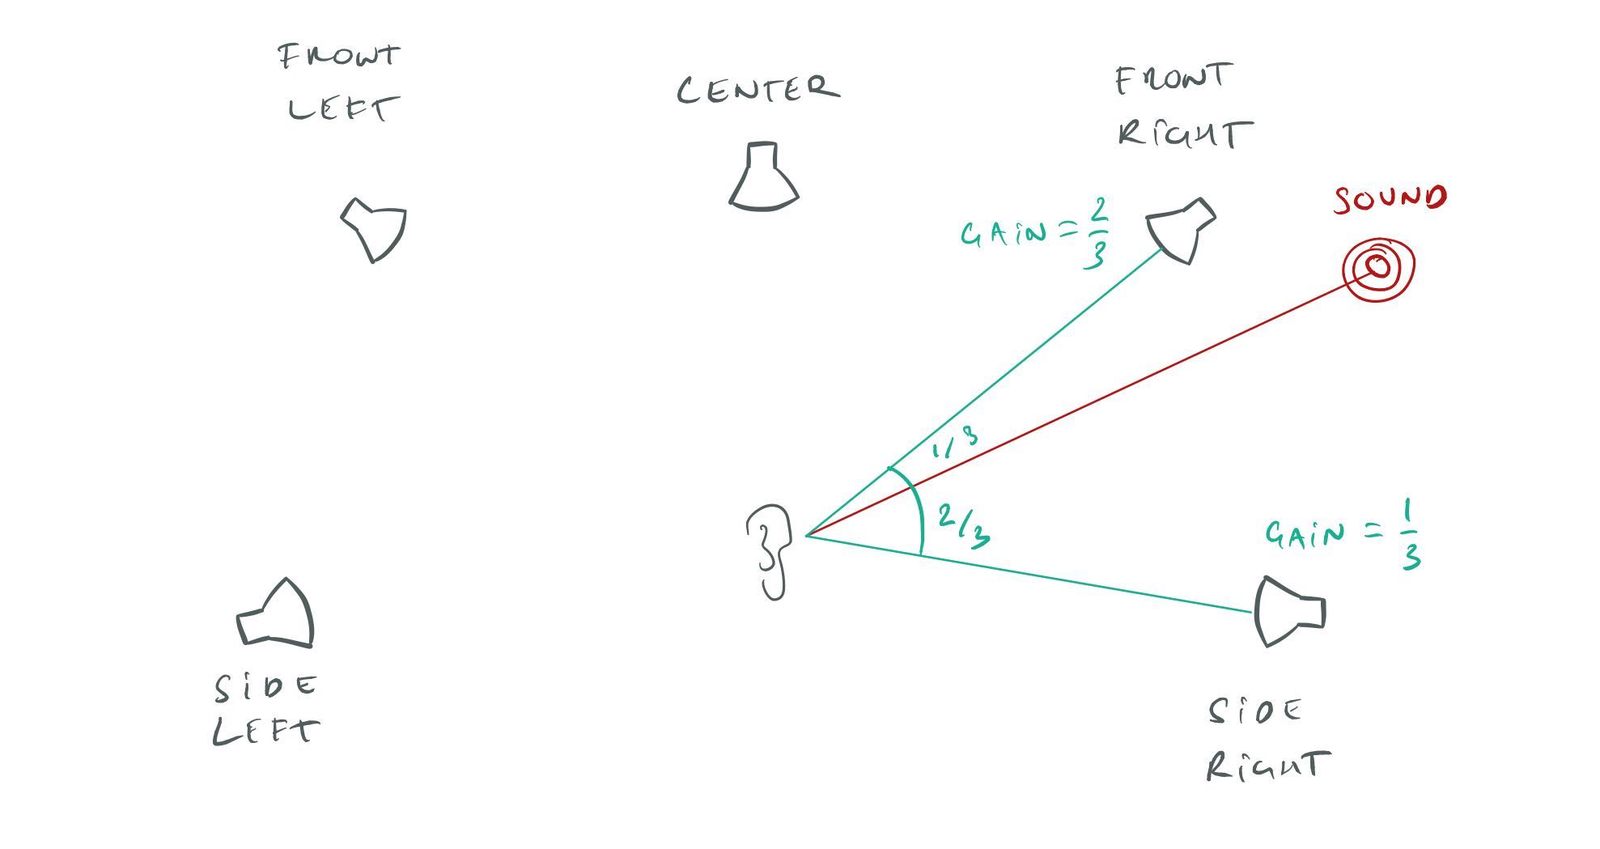 FRONT
LEFT
CENTER
FRONT
RiGHT
SOUND
GAiN = 2/3
1/3
2/3
GAiN = 1/3
SiDE
LEFT
SiDE
RiGHT